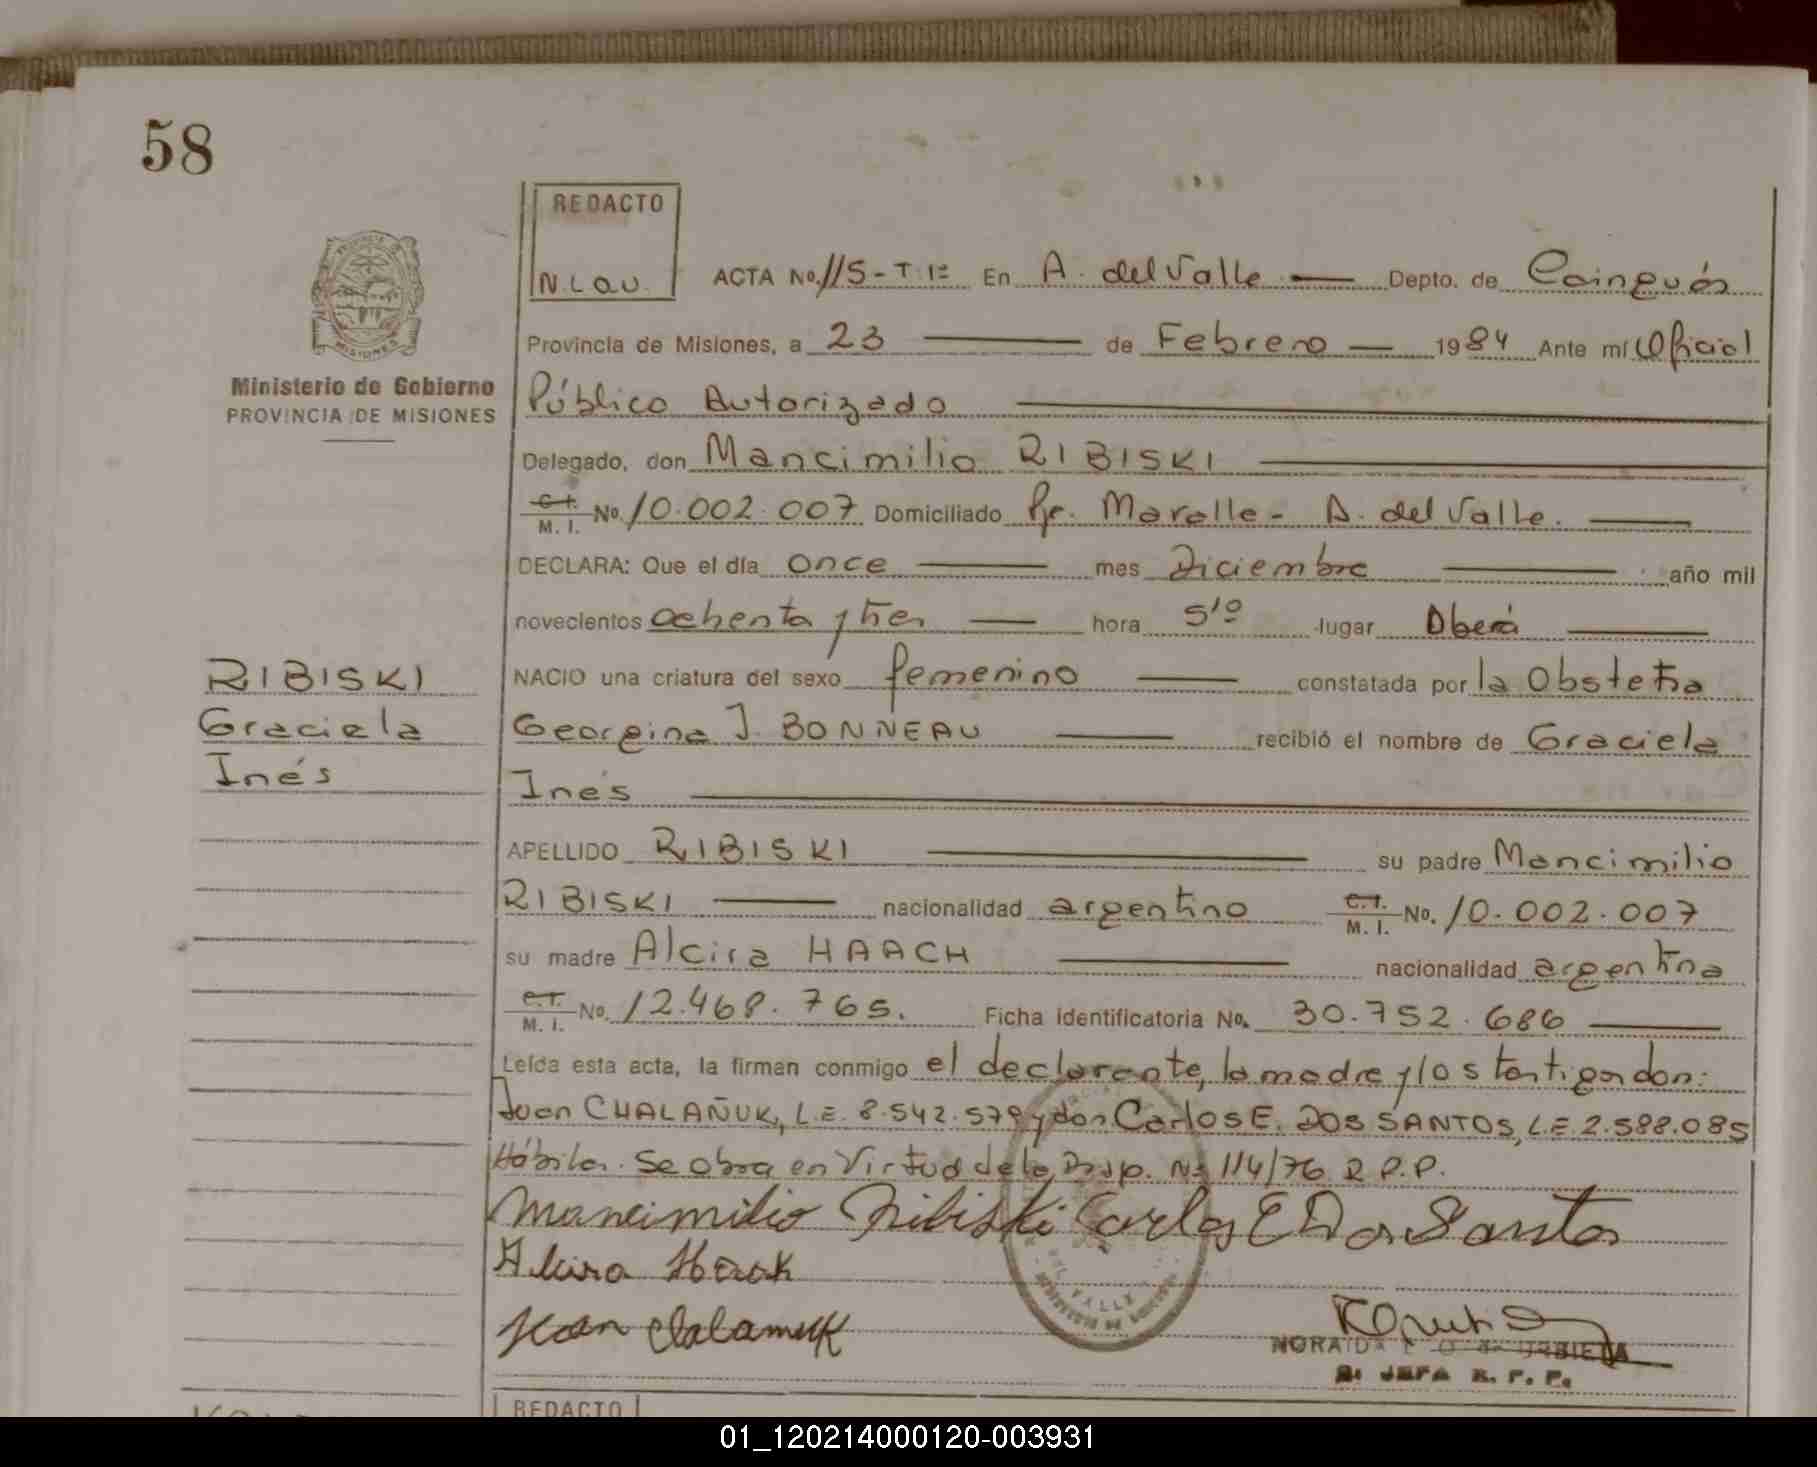 58
REDACTO
N.L.O.U.
ACTA No. 115 - T. 1º En A. del Valle Depto. de Cainguás
Provincia de Misiones, a 23 de Febrero 1984 Ante mí Oficial
Ministerio de Gobierno
PROVINCIA DE MISIONES
Público Autorizado
Delegado, don Mancimilio RIBISKI
C.I. M. I. No. 10.002.007 Domiciliado Pje. Maralle - A. del Valle.
DECLARA: Que el día once mes Diciembre año mil
novecientos ochenta y tres hora 5'º lugar Oberá
RIBISKI
Graciela
Inés
NACIO una criatura del sexo femenino constatada por la Obstetra
Georgina J. BONNEAU recibió el nombre de Graciela
Inés
APELLIDO RIBISKI su padre Mancimilio
RIBISKI nacionalidad argentino C.I. M. I. No. 10.002.007
su madre Alcira HAACH nacionalidad argentina
C.I. M. I. No. 12.468.765. Ficha identificatoria No. 30.752.686
Leída esta acta, la firman conmigo el declarante, la madre y los testigos don:
Juan CHALAÑUK, L.E. 8.542.579 y don Carlos E. DOS SANTOS, L.E. 2.588.085
Hábiles. Se obra en Virtud de la Disp. Nº 114/76 R.P.P.
Mancimilio Ribiski Carlos E Dos Santos
Alcira Haach
Juan Chalanuk
NORAIDA L. O. de URBIETA
2. JEFA R. P. P.
MISIONES
REDACTO
01_120214000120-003931